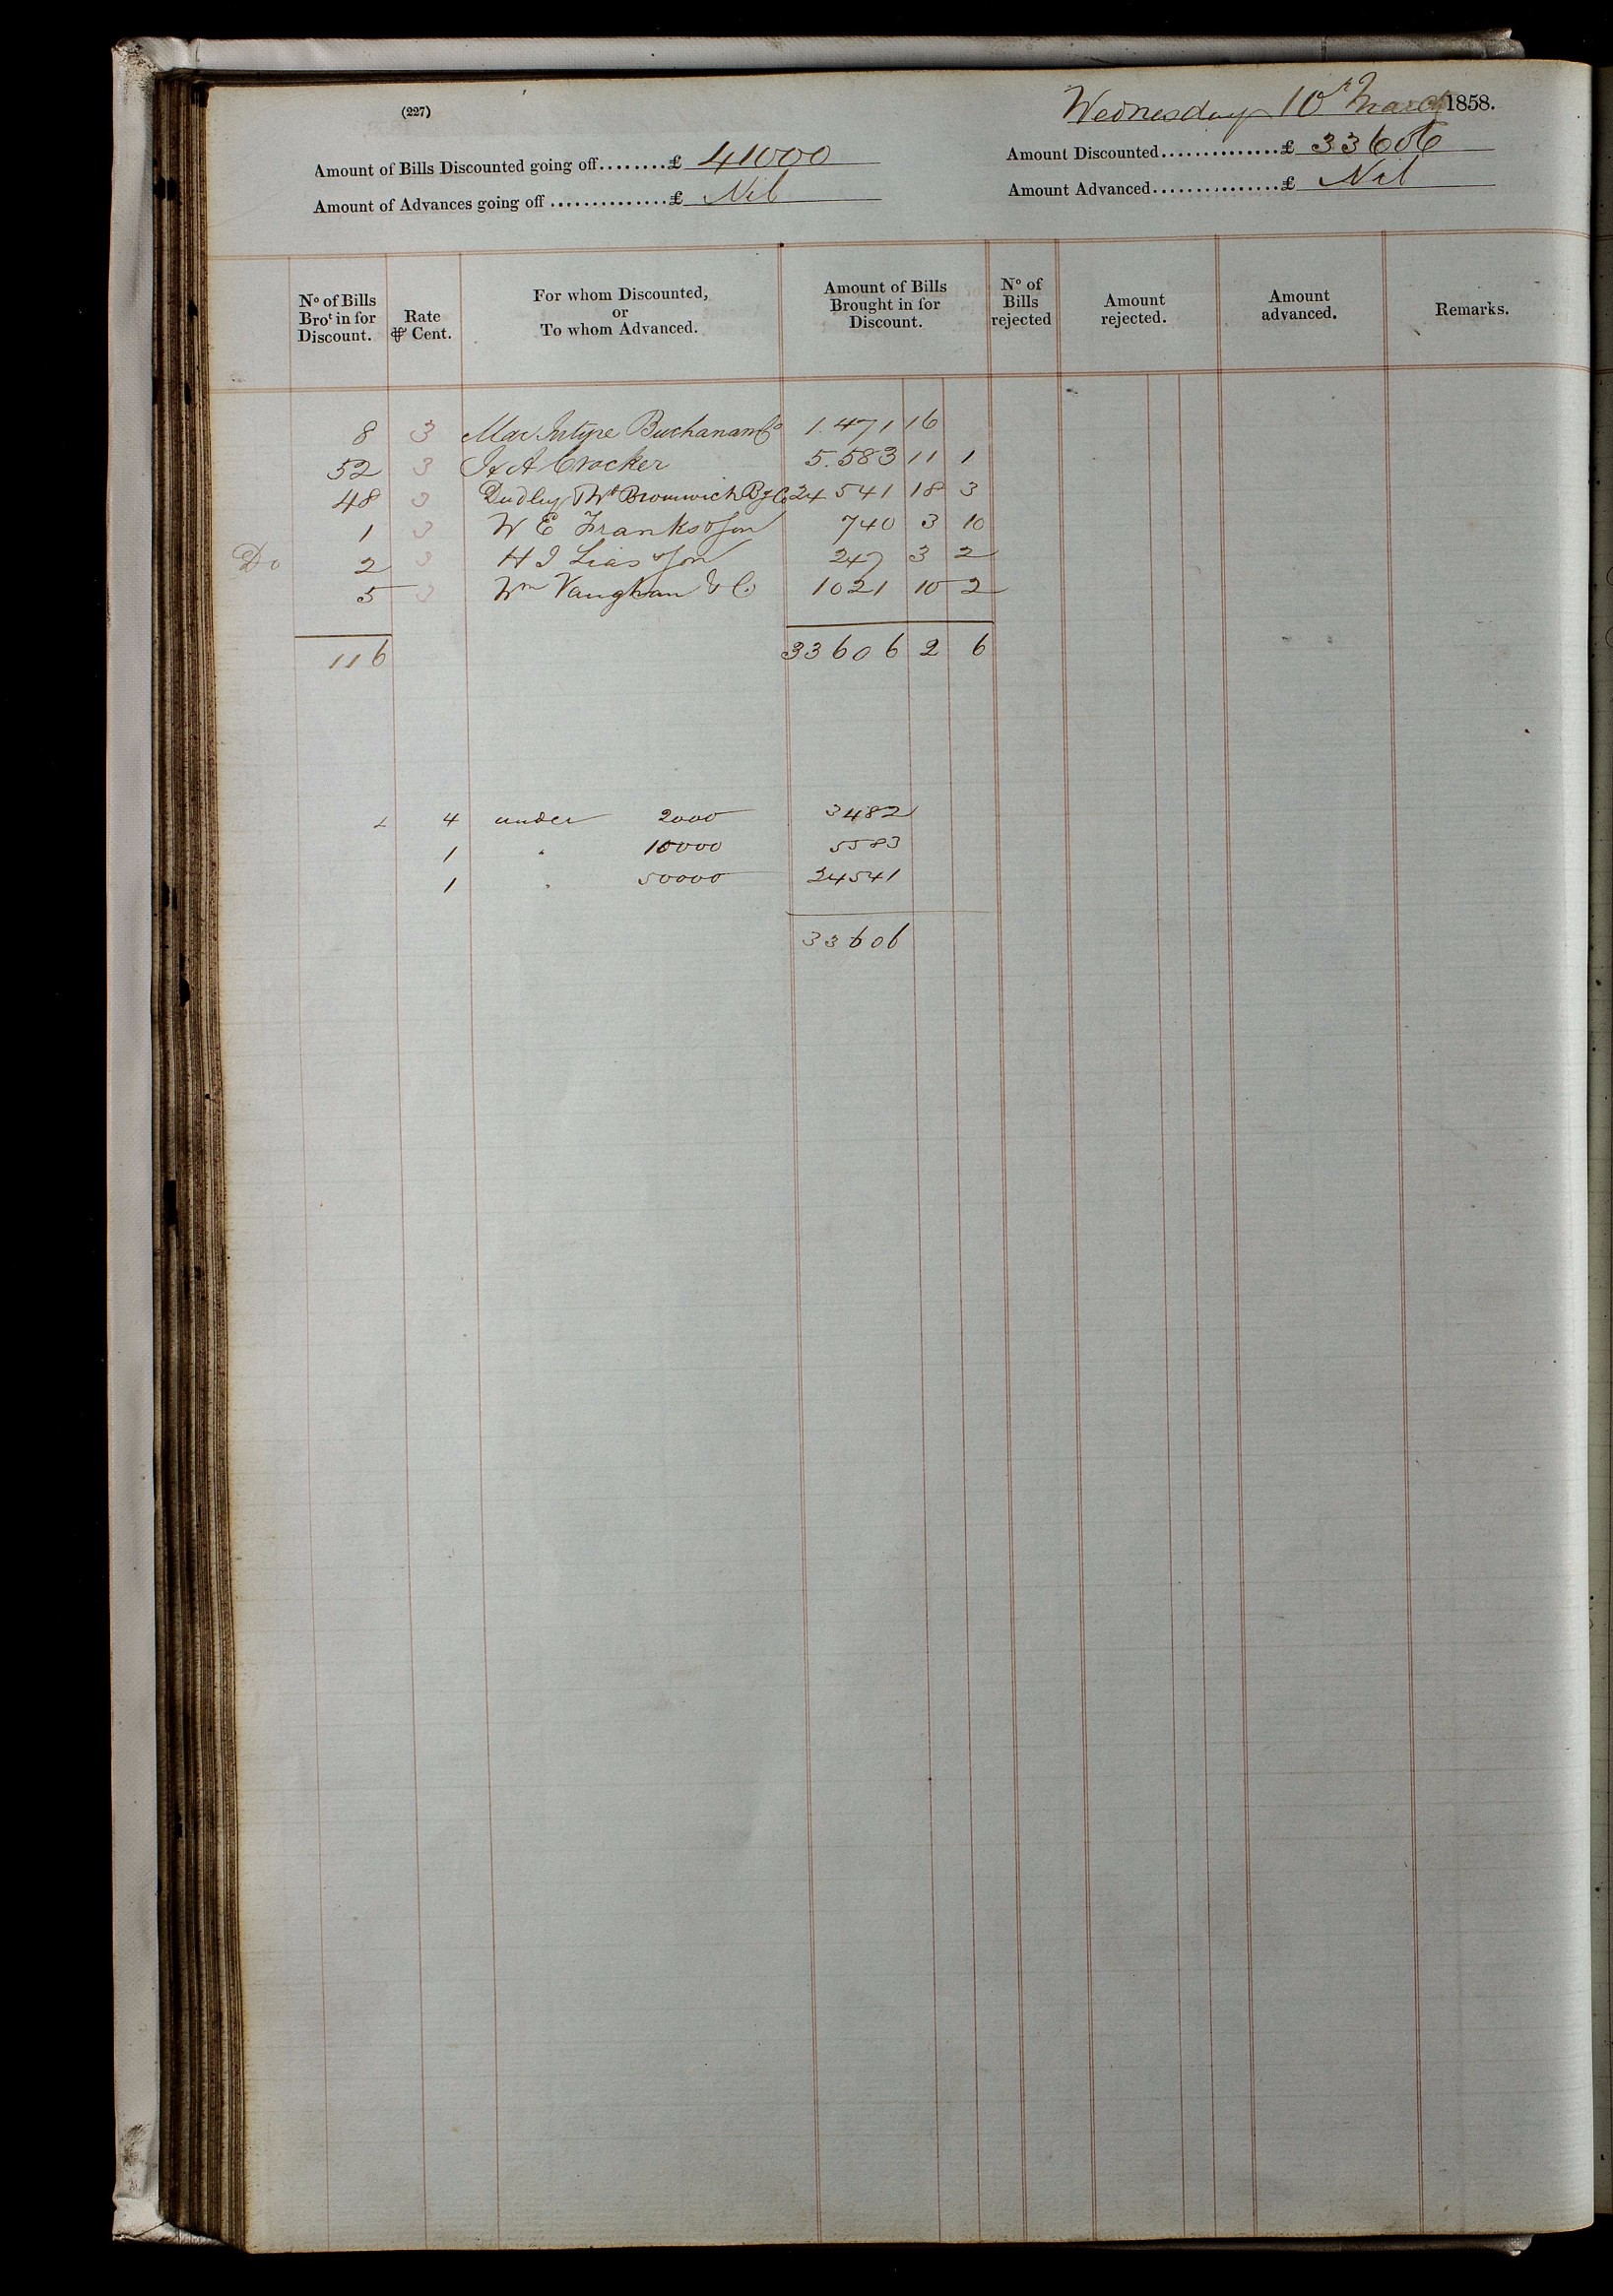 (227)
Wednesday 10th March 1858.
Amount of Bills Discounted going off........£ 41000
Amount Discounted...............£ 33606
Amount of Advances going off ...............£ Nil
Amount Advanced................£ Nil
No of Bills Brot in for Discount.
Rate ⅌ Cent.
For whom Discounted, or To whom Advanced.
Amount of Bills Brought in for Discount.
No of Bills rejected
Amount rejected.
Amount advanced.
Remarks.
8 3 MacIntyre Buchanan & Co 1.471 16
52 3 A Crocker 5.583 11 1
48 3 Dudley & Wt Bromwich Bg Co 24 541 18 3
1 3 W E Franks & Son 740 3 10
Do 2 3 H I Lias & Son 247 3 2
5 3 Wm Vaughan & Co 1021 10 2
116 33606 2 6
4 under 2000 3482
1 " 10000 5583
1 " 50000 24541
33606